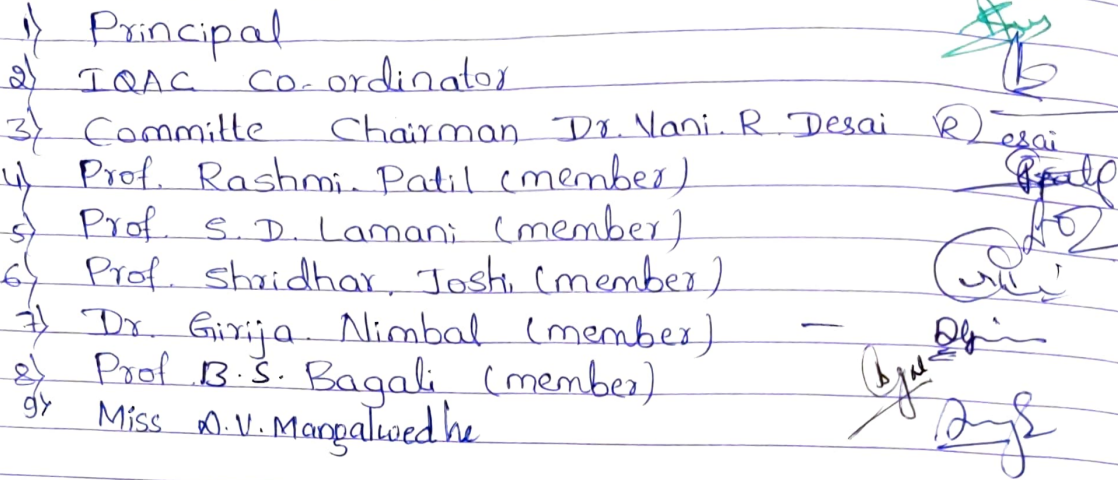 1) Principal
2) IQAC Co-ordinator
3) Committe Chairman Dr. Vani. R. Desai
4) Prof. Rashmi. Patil (member)
5) Prof. S. D. Lamani (member)
6) Prof. Shridhar. Joshi (member)
7) Dr. Girija. Nimbal (member) —
8) Prof. B.S. Bagali (member)
9) Miss A.V. Mangalwedhe